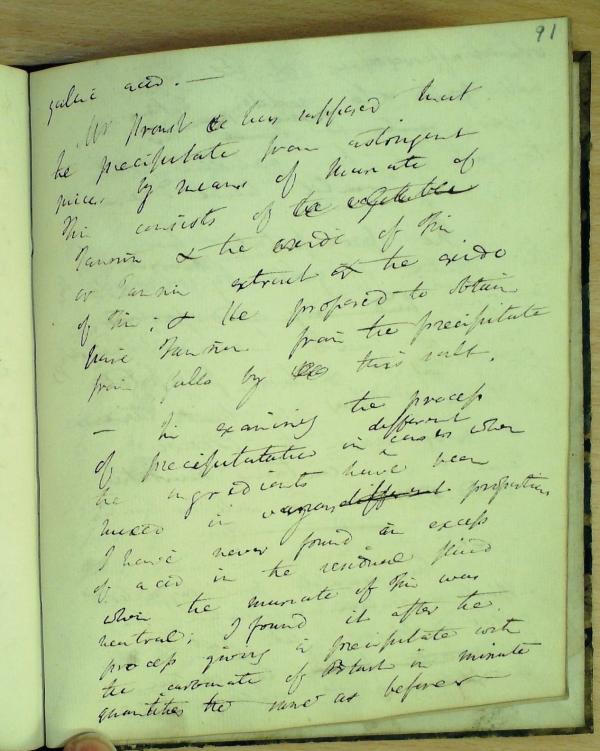 91
gallic acid. —
Mr Proust has supposed that
the precipitate from astringent
juices by means of Muriate of
Tin consists of the vegetable
Tannin & the oxide of Tin
or Tannin extract & the oxide
of Tin; & He proposed to obtain
pure Tannin from the precipitate
from galls by this salt.
— In examining the process
of precipitation in different cases when
the ingredients have been
mixed in various different proportions
I have never found an excess
of acid in the residual fluid
when the muriate of Tin was
neutral; I found it after the
process giving a precipitate with
the carbonate of Potash in minute
quantities the same as before —